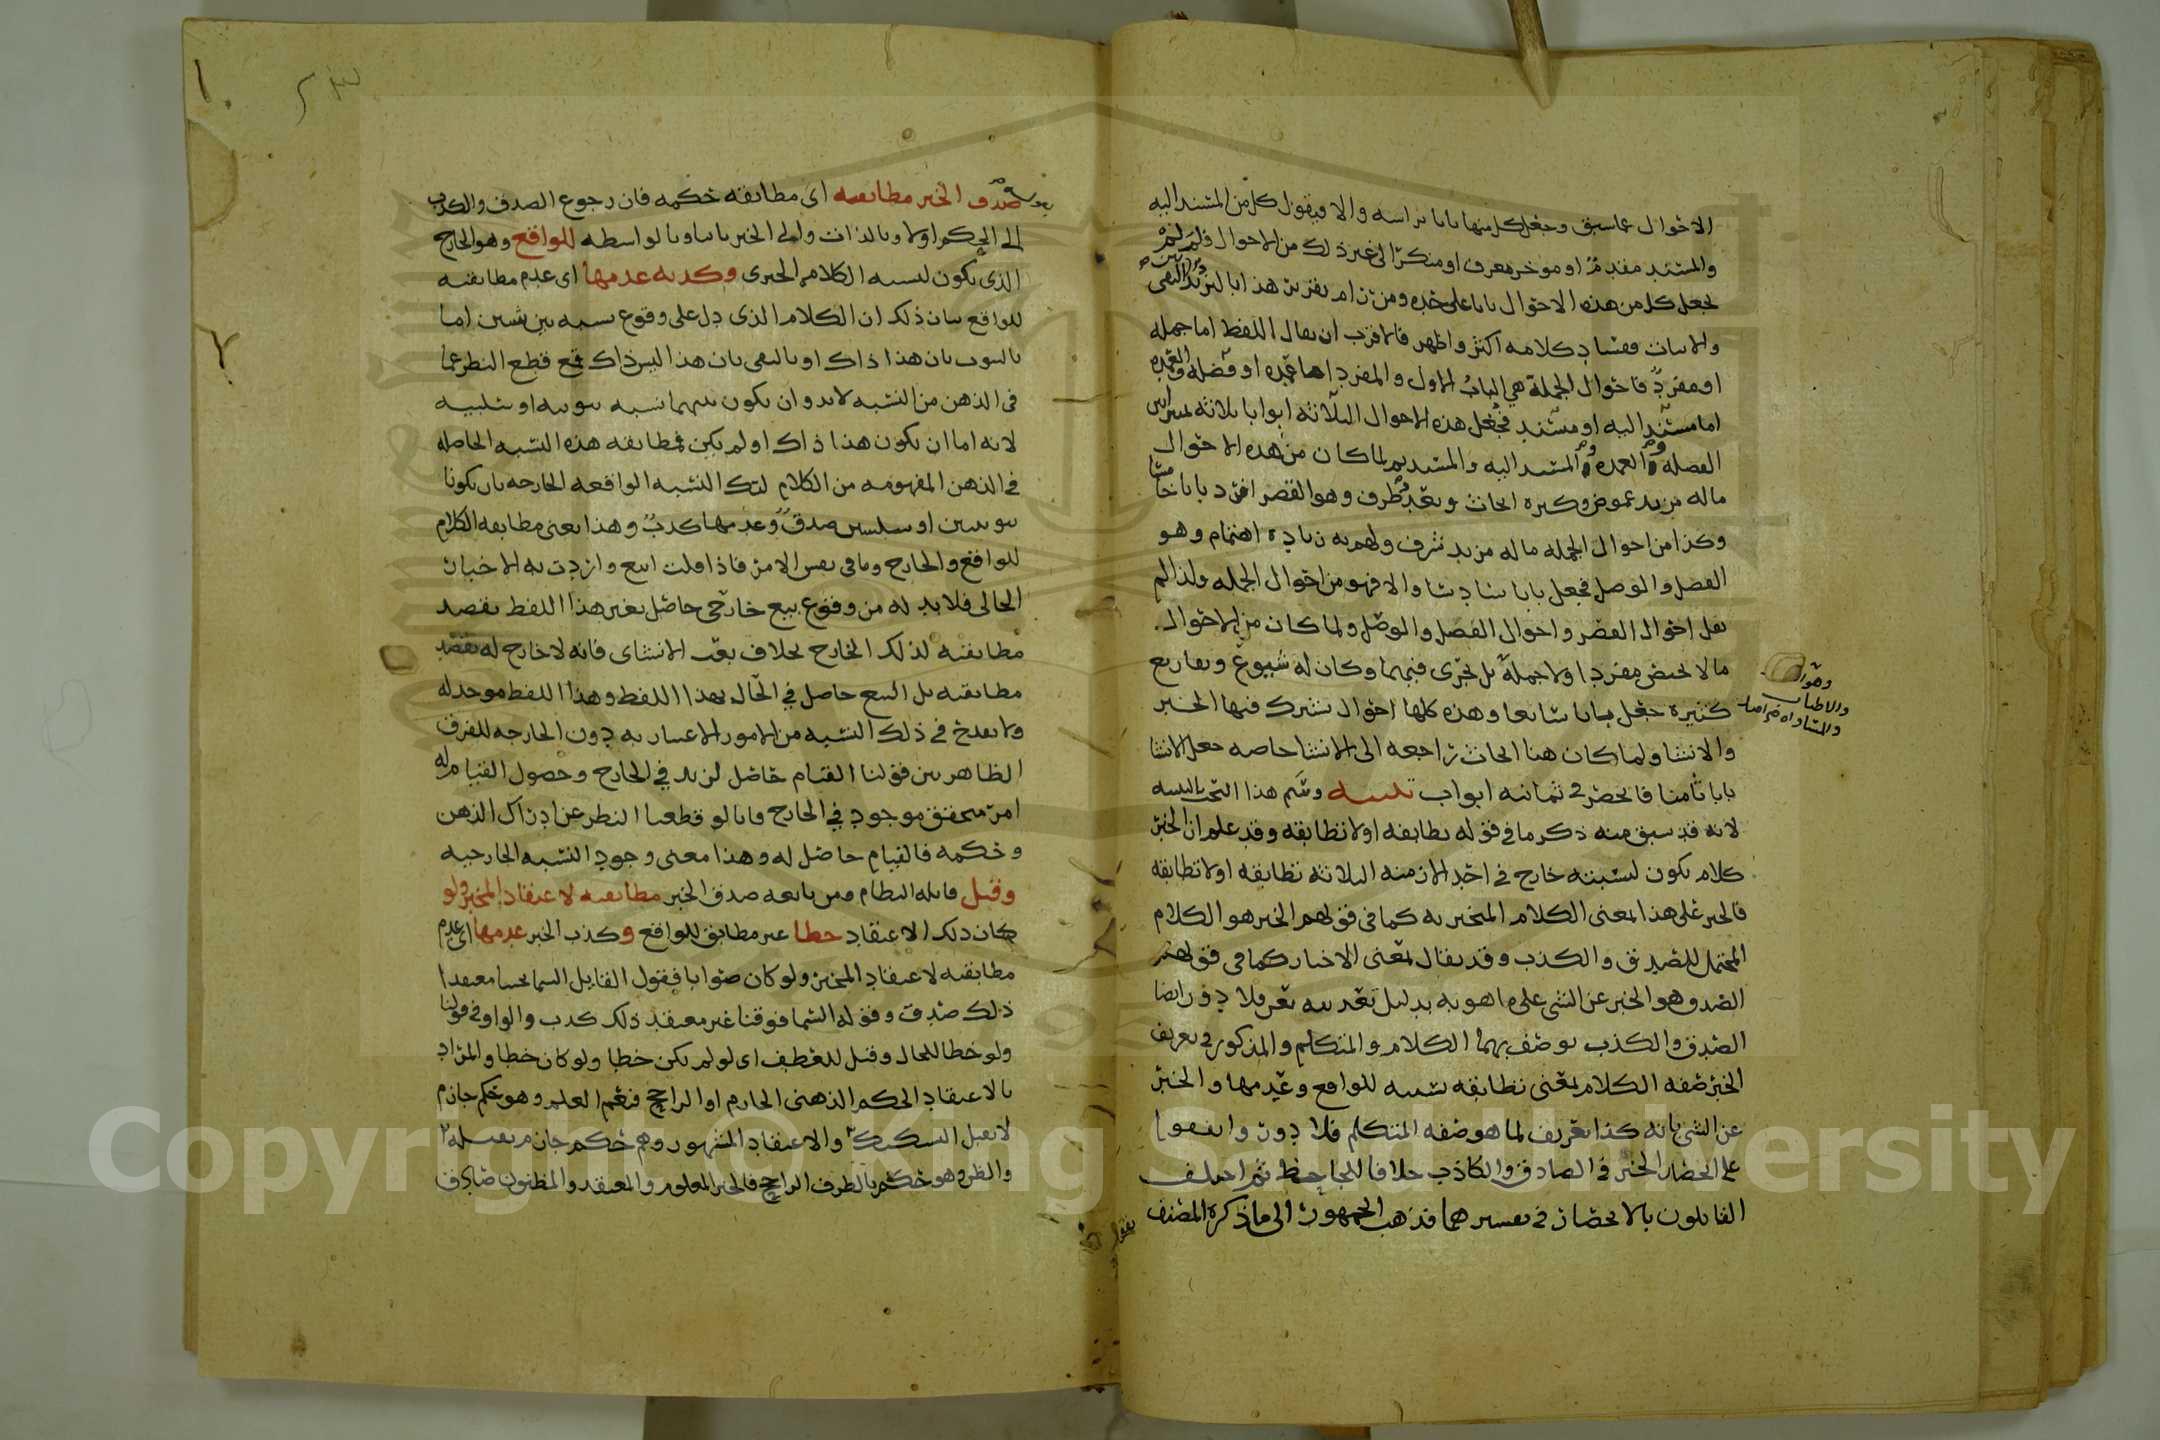 الاحوال عما سبق وجعل كل منها بابا براسه والا فيقول كل من المسند اليه
والمسند مقدم او موخر معرف او منكر الى غير ذلك من الاحوال فلم لم
يجعل كل من هذه الاحوال بابا على حده ومن رام تقرير هذا بالترديد بين النفى
والاثبات ففساد كلامه اكثر واظهر فالاقرب ان يقال اللفظ اما جمله
او مفرد فاحوال الجملة هي الباب الاول والمفرد اما عمده او فضله والعمده
اما مسند اليه او مسند فجعل هذه الاحوال الثلاثه ابوابا ثلاثه تمييزا بين
الفضله والعمده والمسند اليه والمسند ثم لما كان من هذه الاحوال
ما له مزيد غموض وكثره ابحاث وتعدد طرف وهو القصر افرد بابا خامسا
وكذا من احوال الجمله ما له مزيد شرف ولهم به زيادة اهتمام وهو
الفصل والوصل فجعل بابا سادسا والا فهو من احوال الجمله ولذا لم
يقل احوال القصر واحوال الفصل والوصل ولما كان من الاحوال
ما لا يختص مفردا ولا جملة بل يجرى فيهما وكان له شيوع وتفاريع
كثيرة جعل بابا سابعا وهذه كلها احوال يشترك فيها الخبر
والانشا ولما كان هنا ابحاث راجعه الى الانشا خاصه جعل الانشا
بابا ثامنا فانحصر في ثمانيه ابواب تنبيه وسم هذا البحث بالتنبيه
لانه قد سبق منه ذكر ما في قوله تطابقه او لا تطابقه وقد علم ان الخبر
كلام يكون لنسبته خارج في احد الازمنه الثلاثه تطابقه او لا تطابقه
فالخبر على هذا بمعنى الكلام المخبر به كما في قولهم الخبر هو الكلام
المحتمل للصدق والكذب وقد يقال بمعنى الاخبار كما في قولهم
الصدق هو الخبر عن الشى على ما هو به بدليل تعديته بعن فلا دور وايضا
الصدق والكذب يوصف بهما الكلام والمتكلم والمذكور في تعريف
الخبر صفه الكلام بمعنى تطابقه نسبه للواقع وعدمها والخبر
عن الشى بانه كذا تعريف لما هو صفه المتكلم فلا دور واتفقوا
على انحصار الخبر في الصادق والكاذب خلافا للجاحظ ثم اختلف
القايلون بالانحصار في تفسيرهما فذهب الجمهور الى ما ذكره المصنف
وهو
والاطناب
والمساواه
بقوله
بقوله صدق الخبر مطابقته اى مطابقه حكمه فان رجوع الصدق والكذب
الى الحكم اولا وبالذات والى الخبر ثانيا وبالواسطه للواقع وهو الخارج
الذى يكون لنسبه الكلام الخبرى وكذبه عدمها اى عدم مطابقته
للواقع بيان ذلك ان الكلام الذى دل على وقوع نسبه بين شيين اما
بالثبوت بان هذا ذاك او بالنفى بان هذا ليس ذاك فمع قطع النظر عما
فى الذهن من النسبه لا بد وان يكون بينهما نسبه ثبوتيه او سلبيه
لانه اما ان يكون هذا ذاك او لم يكن فمطابقه هذه النسبه الحاصله
في الذهن المفهومه من الكلام لتلك النسبه الواقعه الخارجه بان يكونا
ثبوتيين او سلبيين صدق وعدمها كذب وهذا معنى مطابقه الكلام
للواقع والخارج وما في نفس الامر فاذا قلت ابيع واردت به الاخبار
الحالى فلا بد له من وقوع بيع خارجي حاصل بغير هذا اللفظ يقصد
مطابقته لذلك الخارج بخلاف بعت الانشاى فانه لا خارج له يقصد
مطابقته بل البيع حاصل في الحال بهذا اللفظ وهذا اللفظ موجد له
ولا يقدح في ذلك النسبه من الامور الاعتباريه دون الخارجه للفرق
الظاهر بين قولنا القيام حاصل لزيد في الخارج وحصول القيام له
امر متحقق موجود في الخارج فانا لو قطعنا النظر عن ادراك الذهن
وحكمه فالقيام حاصل له وهذا معنى وجود النسبه الخارجيه
وقيل قايله النظام ومن تابعه صدق الخبر مطابقته لاعتقاد المخبر ولو
كان ذلك الاعتقاد خطا غير مطابق للواقع وكذب الخبر عدمها اى عدم
مطابقته لاعتقاد المخبر ولو كان صوابا فقول القايل السما تحتنا معتقدا
ذلك صدق وقوله السما فوقنا غير معتقد ذلك كذب والواو في قولنا
ولو خطا للحال وقيل للعطف اى لو لم يكن خطا ولو كان خطا والمراد
بالاعتقاد الحكم الذهنى الجازم او الراجح فيعم العلم وهو حكم جازم
لا يقبل التشكيك والاعتقاد المشهور وهو حكم جازم يقبله
والظن وهو حكم بالطرف الراجح فالخبر المعلوم والمعتقد والمظنون صادق
Copyright © King Saud University